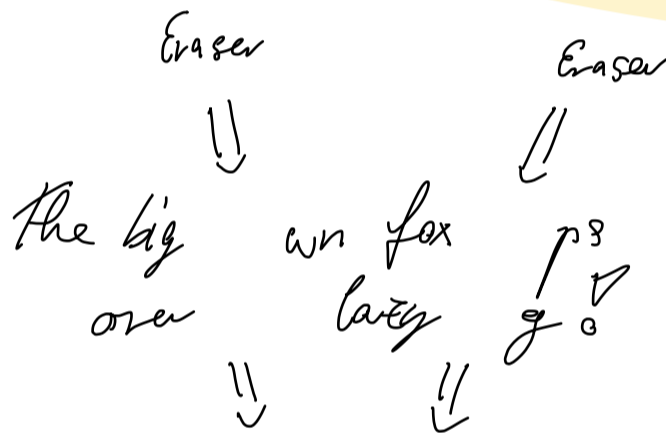 Eraser Eraser
The big wn fox ps
over lazy g